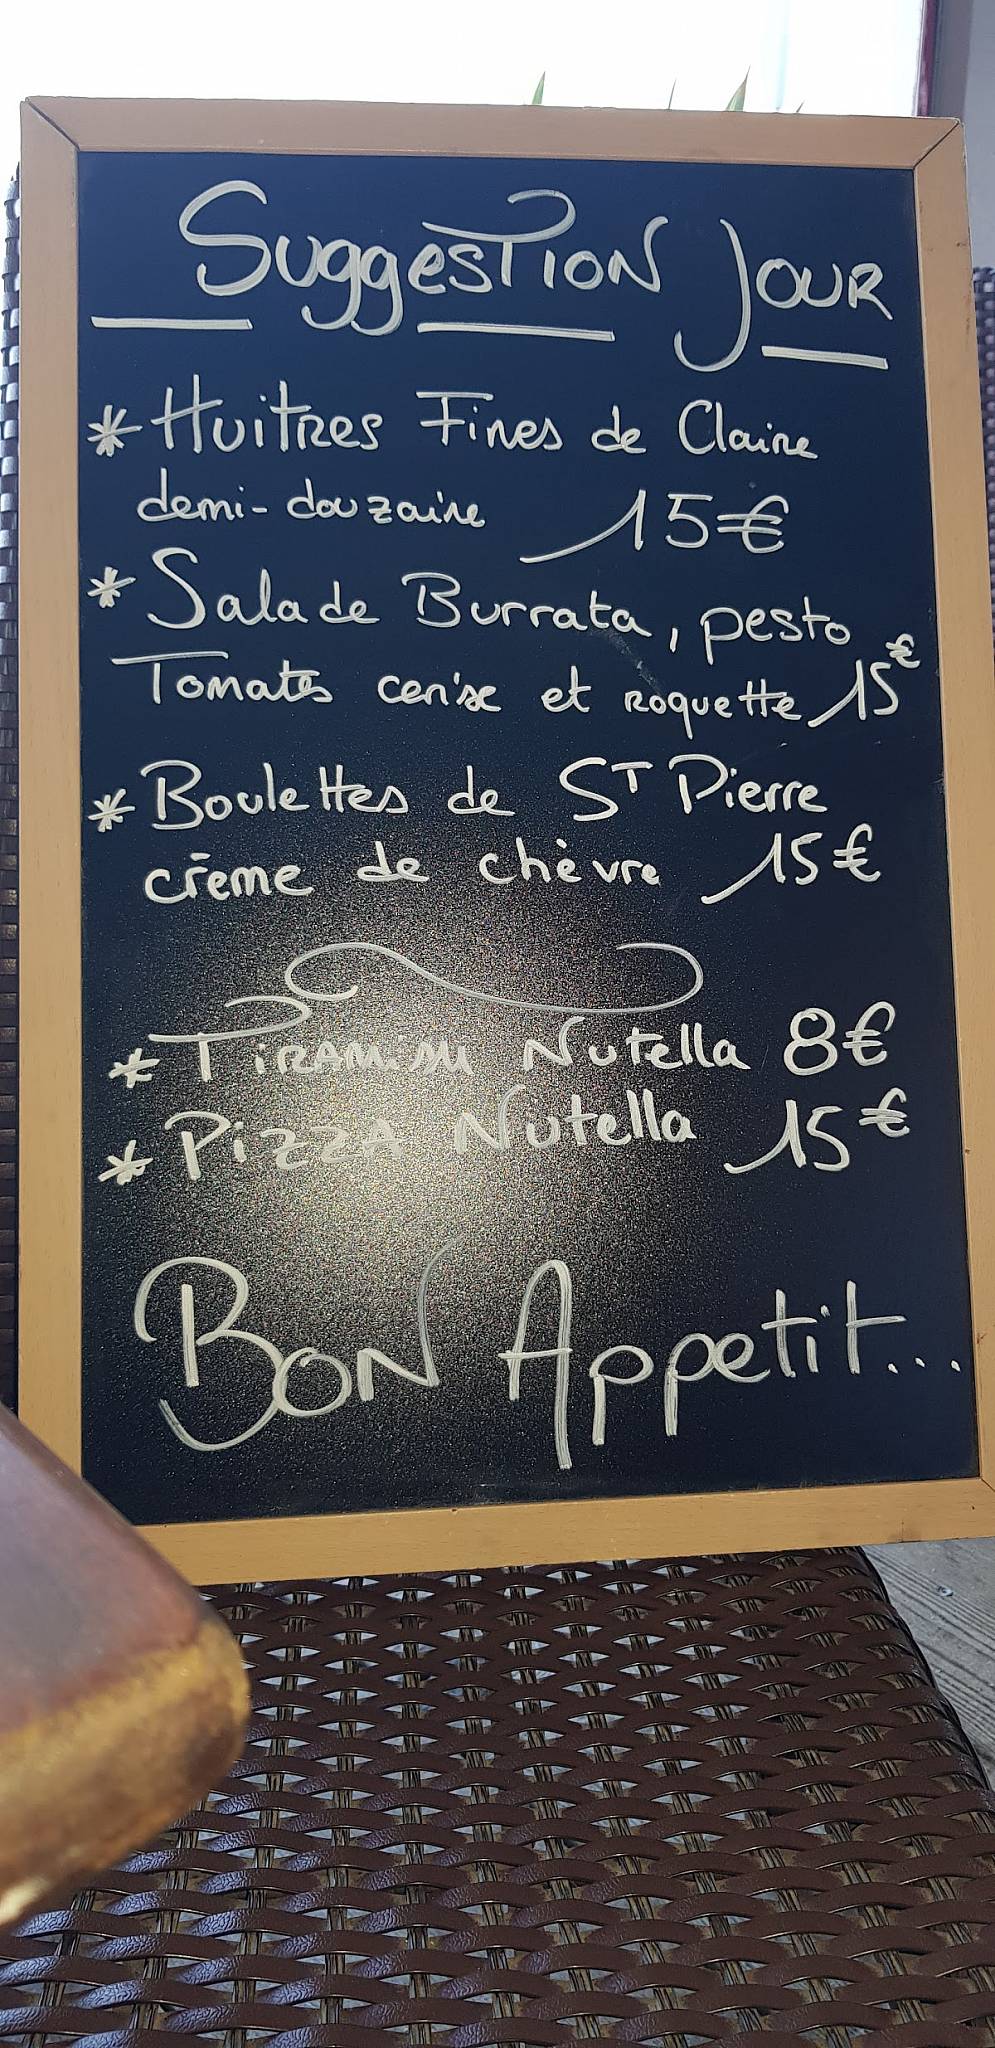 Suggestion Jour
* Huitres Fines de Claire
demi-douzaine 15€
* Salade Burrata, pesto
Tomates cerise et roquette 15€
* Boulettes de ST Pierre
crème de chèvre 15€
* Tiramisu Nutella 8€
* Pizza Nutella 15€
Bon Appetit...